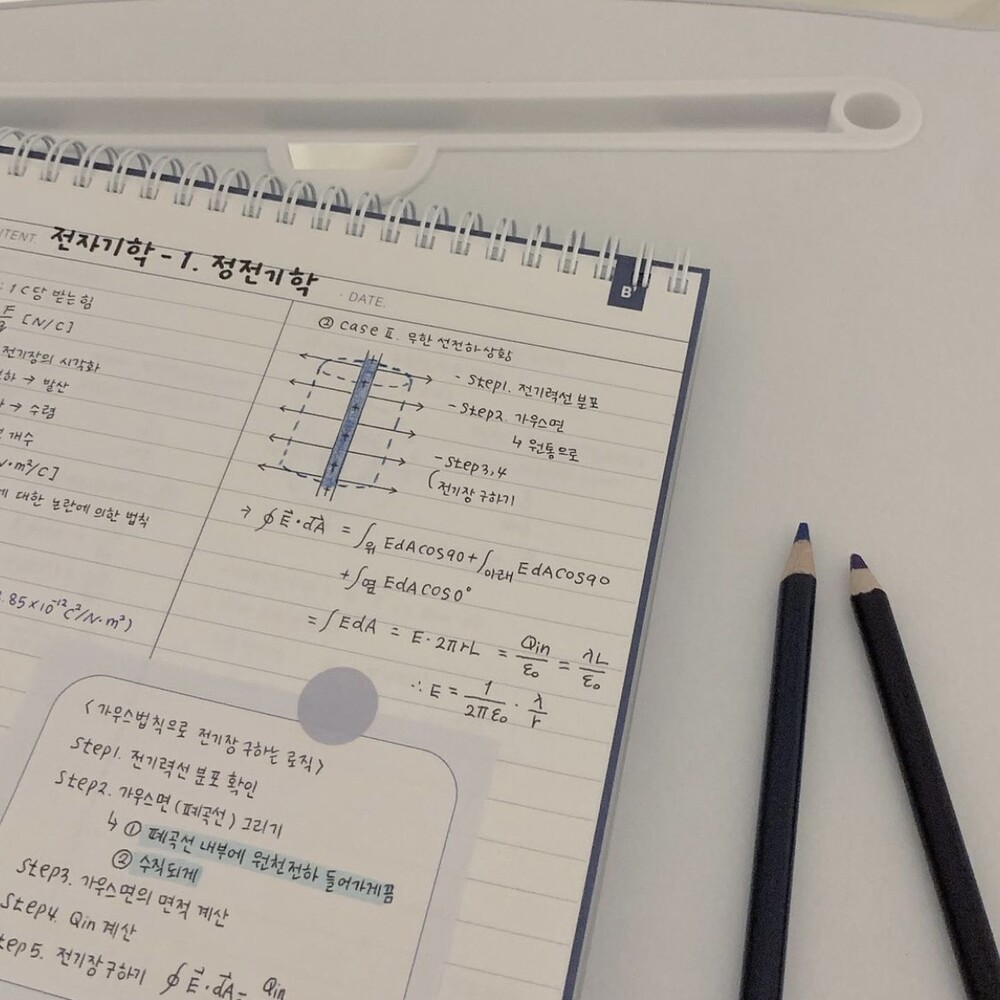 전자기학 - 1. 정전기학
DATE.
B'
1C당 받는 힘
[N/C]
전기장의 시각화
→ 발산
→ 수렴
개수
N·m²/C]
대한 논란에 의한 법칙
.85×10⁻¹²C²/N·m²)
② case Ⅱ. 무한 선전하 상황
- step1. 전기력선 분포
- step2. 가우스면
↳ 원통으로
- step3,4
(전기장 구하기
→ ∮E⃗·dA⃗ = ∫위 EdAcos90 + ∫아래 EdAcos90
+ ∫옆 EdAcos0°
= ∫EdA = E·2πrL = Qin/ε₀ = λL/ε₀
∴ E = 1/2πε₀ · λ/r
<가우스법칙으로 전기장 구하는 로직>
step1. 전기력선 분포 확인
step2. 가우스면 (폐곡선) 그리기
↳ ① 폐곡선 내부에 원천전하 들어가게끔
② 수직되게
step3. 가우스면의 면적 계산
step4. Qin 계산
tep5. 전기장 구하기 ∮E⃗·dA⃗ = Qin